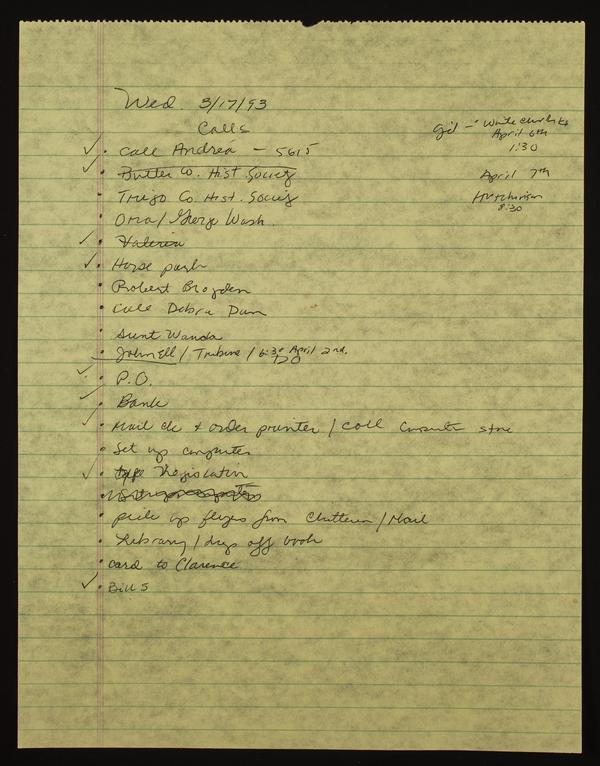 Wed. 3/17/93
Calls
Gil - White
April 6th
1:30
April 7th
Hutchinson
8:30
• Call Andrea - 5615
• Butler Co. Hist. Society
- Trego Co. Hist. Society
• Ora / George Wash.
• Valeria
• Horse
• Robert Brogden
• Call Debra
• Aunt Wanda
• Johnell / Tribune / 6:30 April 2nd.
• P.O.
• Bank
• Mail ck + order printer / call computer store
• Set up computer
• type
• pick up flyers from / Mail
• Library / drop off book
• card to Clarence
• Bills